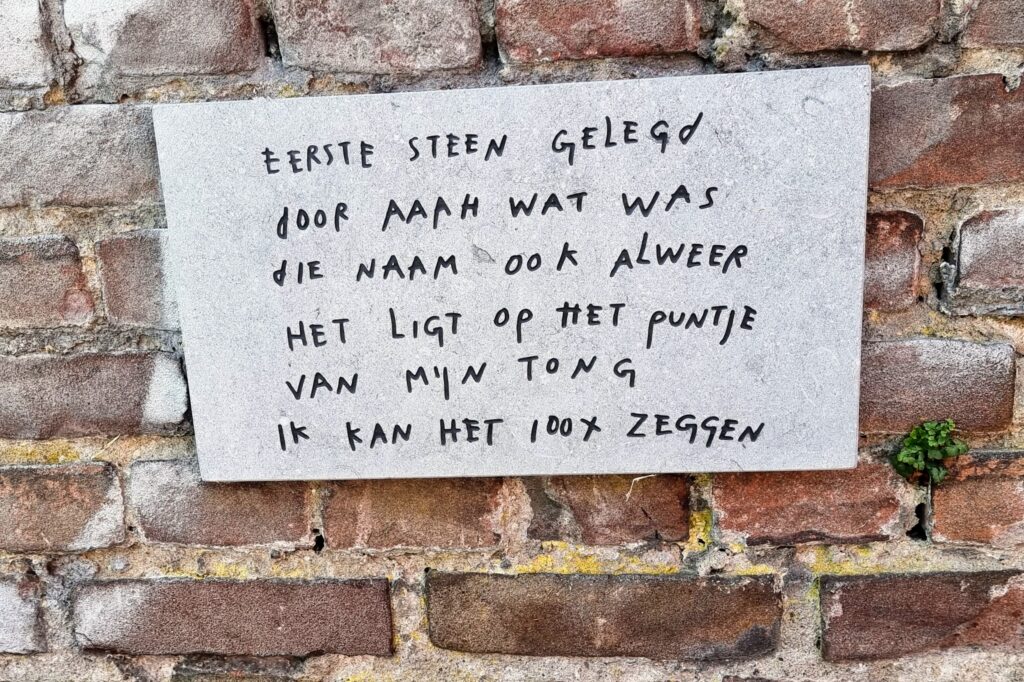 EERSTE STEEN GELEGd
dOOR AAAH WAT WAS
dIE NAAM OOK ALWEER
HET LIGT OP HET PUNTJE
VAN MIJN TONG
IK KAN HET 100X ZEGGEN